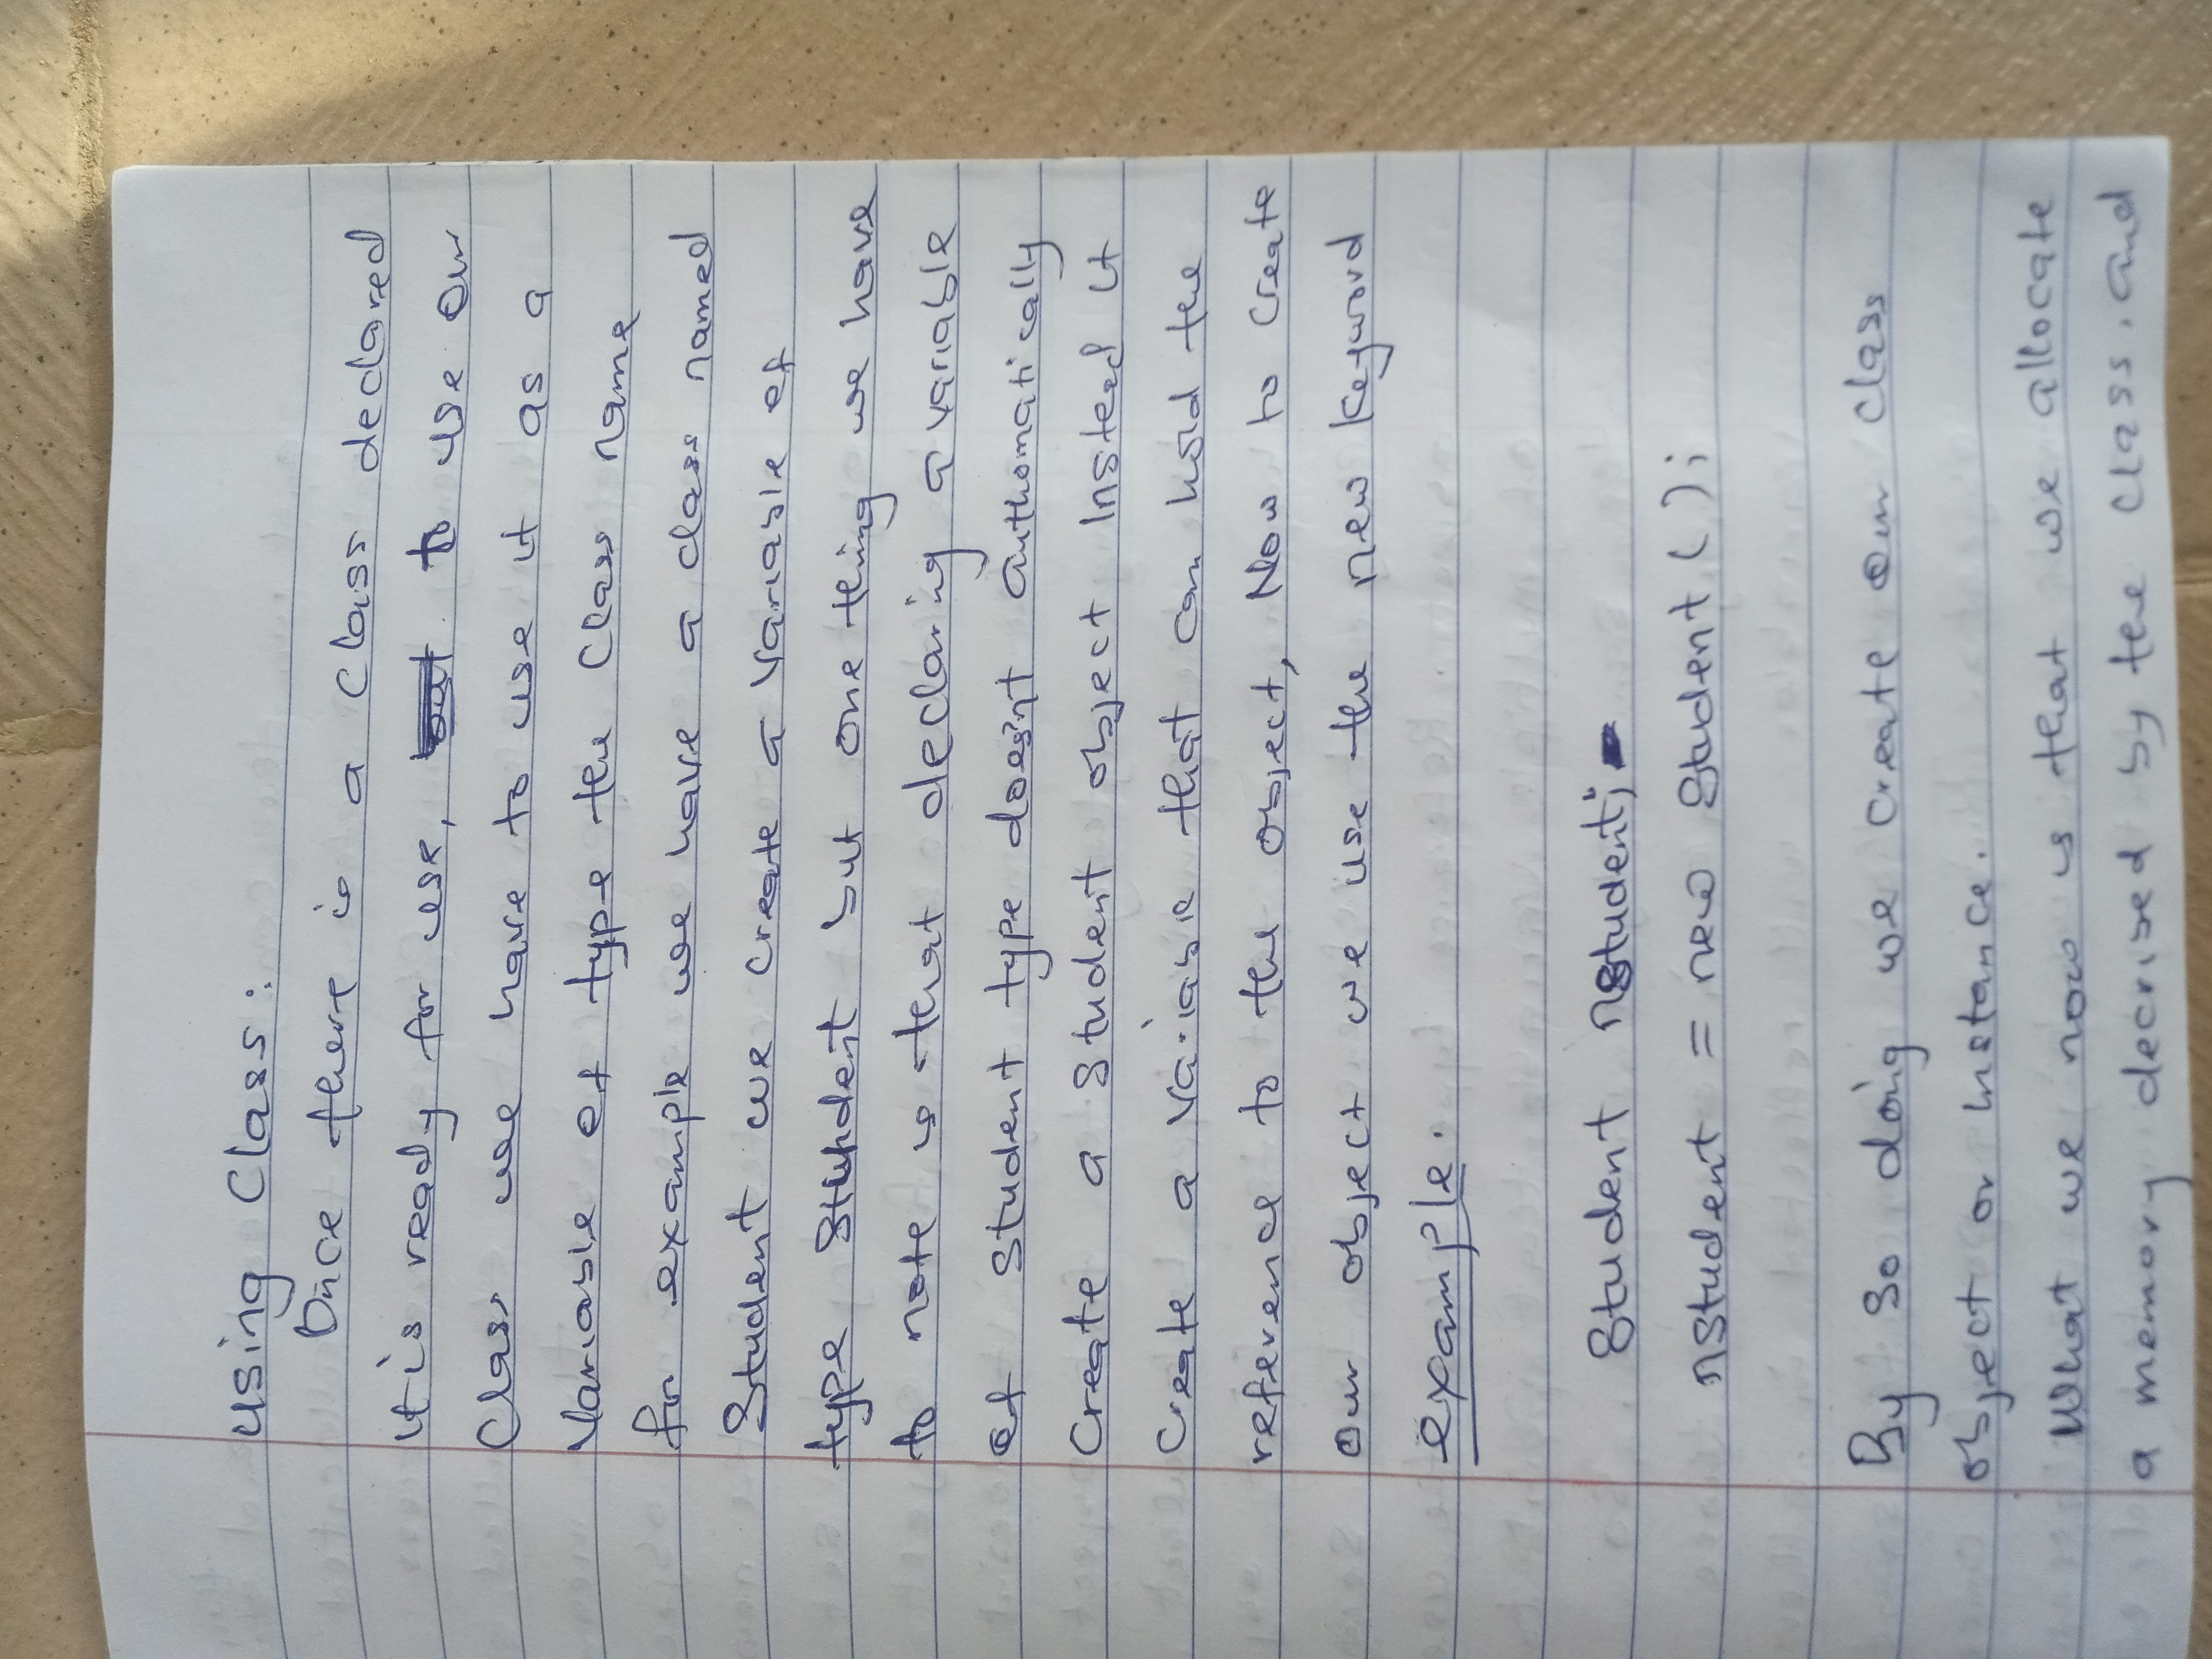 Using Class:
Once there is a Class declared
it is ready for use, to use our
Class we have to use it as a
Variable of type the Class name
for example we have a class named
Student we create a variable of
type Student but one thing we have
to note is that declaring a variable
of student type doesnt authomatically
Create a student object Insted it
Create a variable that can hold the
reference to the object, Now to create
our object we use the new keyword
example.
Student nStudent;
nStudent = new Student();
By so doing we create our class
object or Instance.
What we now is that we allocate
a memory decrised by the class. and